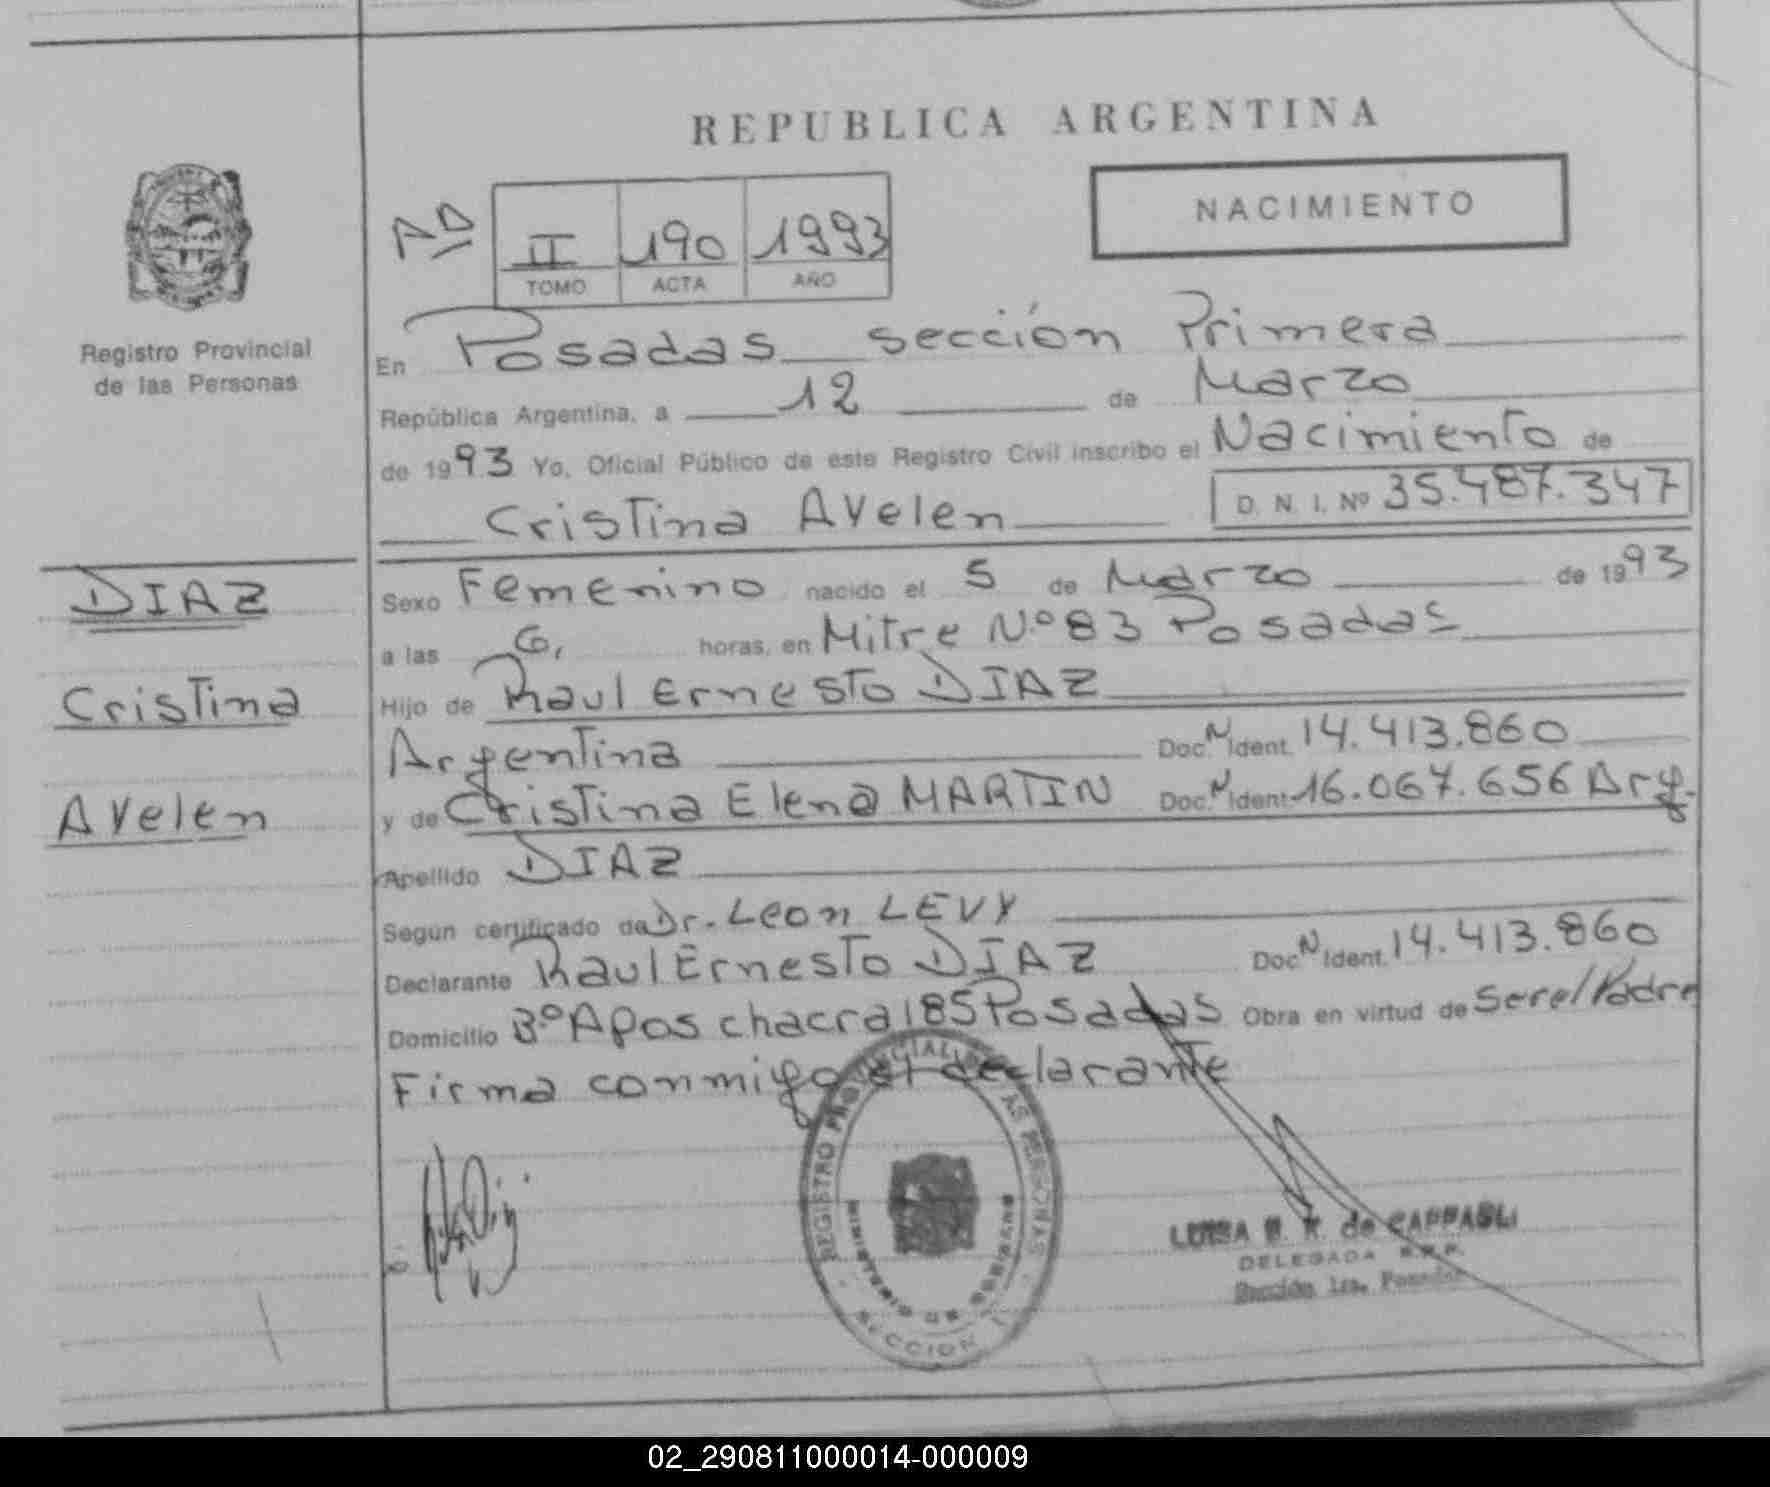 REPUBLICA ARGENTINA
NACIMIENTO
AD
II 190 1993
TOMO ACTA AÑO
Registro Provincial
de las Personas
En Posadas sección Primera
República Argentina, a 12 de Marzo
de 1993 Yo, Oficial Público de este Registro Civil inscribo el Nacimiento de
Cristina AYelen D. N. I. Nº 35.487.347
DIAZ
Cristina
AYelen
Sexo Femenino nacido el 5 de Marzo de 1993
a las 6, horas, en Mitre N.º 83 Posadas
Hijo de Raul Ernesto DIAZ
Argentina Doc. N Ident. 14.413.860
y de Cristina Elena MARTIN Doc. N Ident. 16.067.656 Arg.
Apellido DIAZ
Según certificado de Dr. Leon LEVY
Declarante Raul Ernesto DIAZ Doc. N Ident. 14.413.860
Domicilio B.º APos chacra 185 Posadas Obra en virtud de Ser el Padre
Firma conmigo el declarante
REGISTRO PROVINCIAL DE LAS PERSONAS
MINISTERIO DE GOBIERNO
SECCION 1
LUISA B. K. de CAPPAGLI
DELEGADA R.P.P.
Sección 1ra. Posadas
02_290811000014-000009